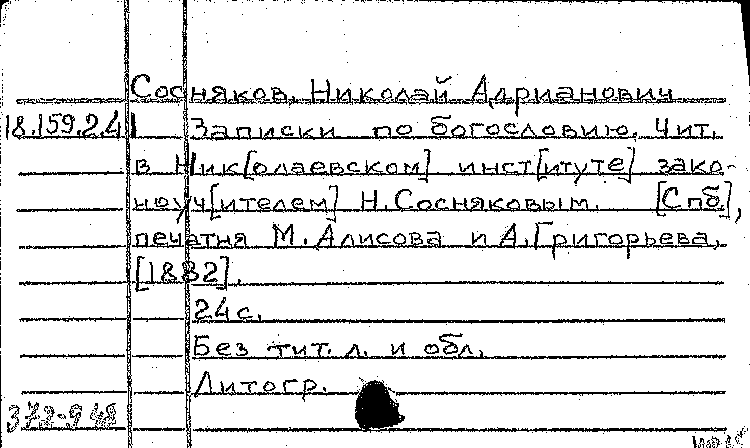 Сосняков, Николай Адрианович
18.159.2.41 Записки по богословию. Чит.
в Ник[олаевском] инст[итуте] зако-
ноуч[ителем] Н. Сосняковым. [Спб],
печатня М. Алисова и А. Григорьева,
[1882].
24 с.
Без тит. л. и обл.
Литогр.
372-948